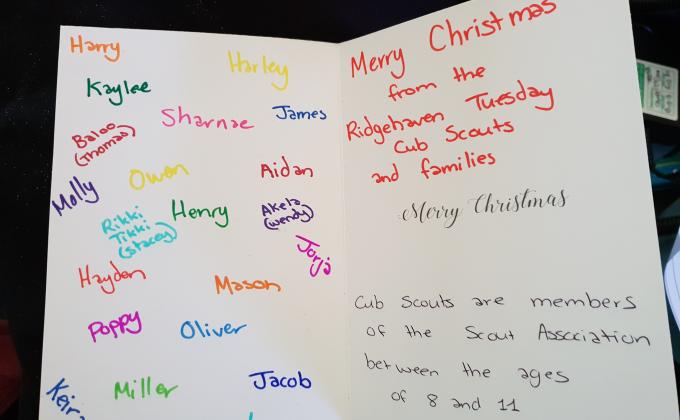 Harry
Harley
Kaylee
Sharnae
James
Baloo
(Thomas)
Owen
Aidan
Molly
Rikki
Tikki
(Stacey)
Henry
Akela
(Wendy)
Jorja
Hayden
Mason
Poppy
Oliver
Miller
Jacob
Merry Christmas
from the
Ridgehaven Tuesday
Cub Scouts
and families
Merry Christmas
Cub Scouts are members
of the Scout Association
between the ages
of 8 and 11